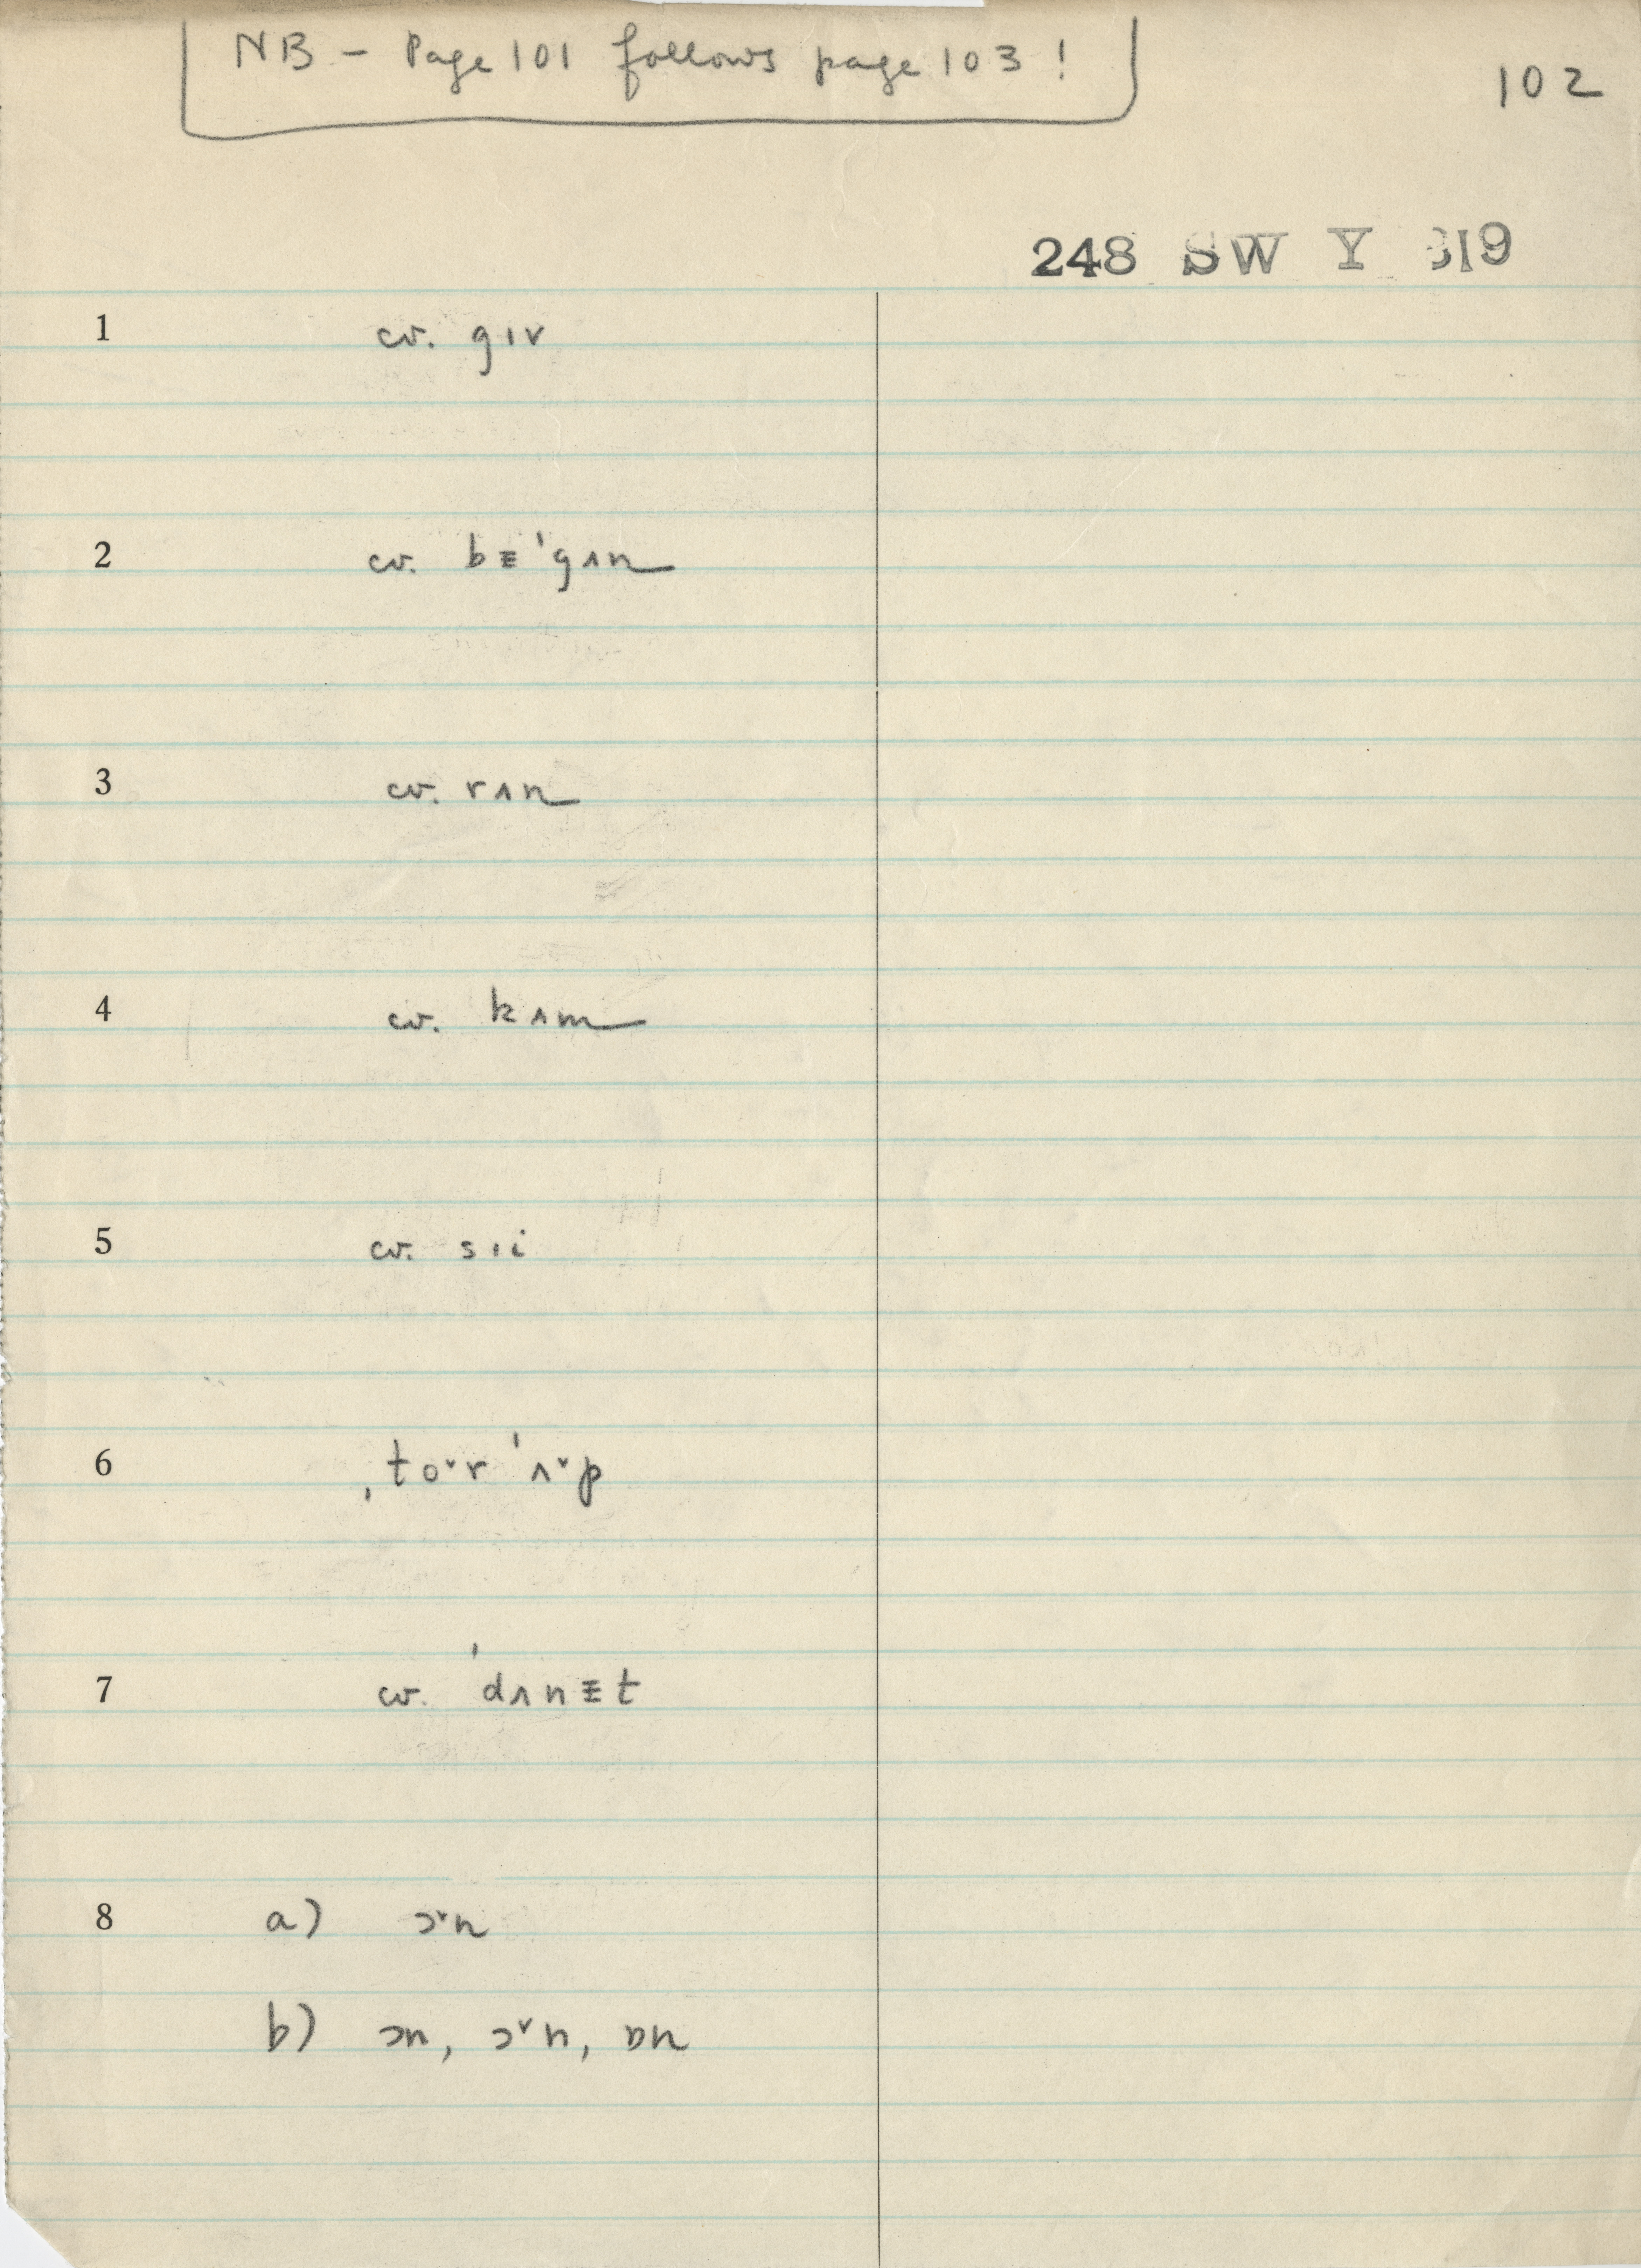 NB – Page 101 follows page 103!
102
248 SW Y 619
1 cv. gɪv
2 cv. bᵻˈgʌn
3 cv. rʌn
4 cv. kʌm
5 cv. sɪi
6 ˌtoˇr ˈʌˇp
7 cv. ˈdʌnᵻt
8 a) ɔˇn
b) ɔn, ɔˇn, ɒn